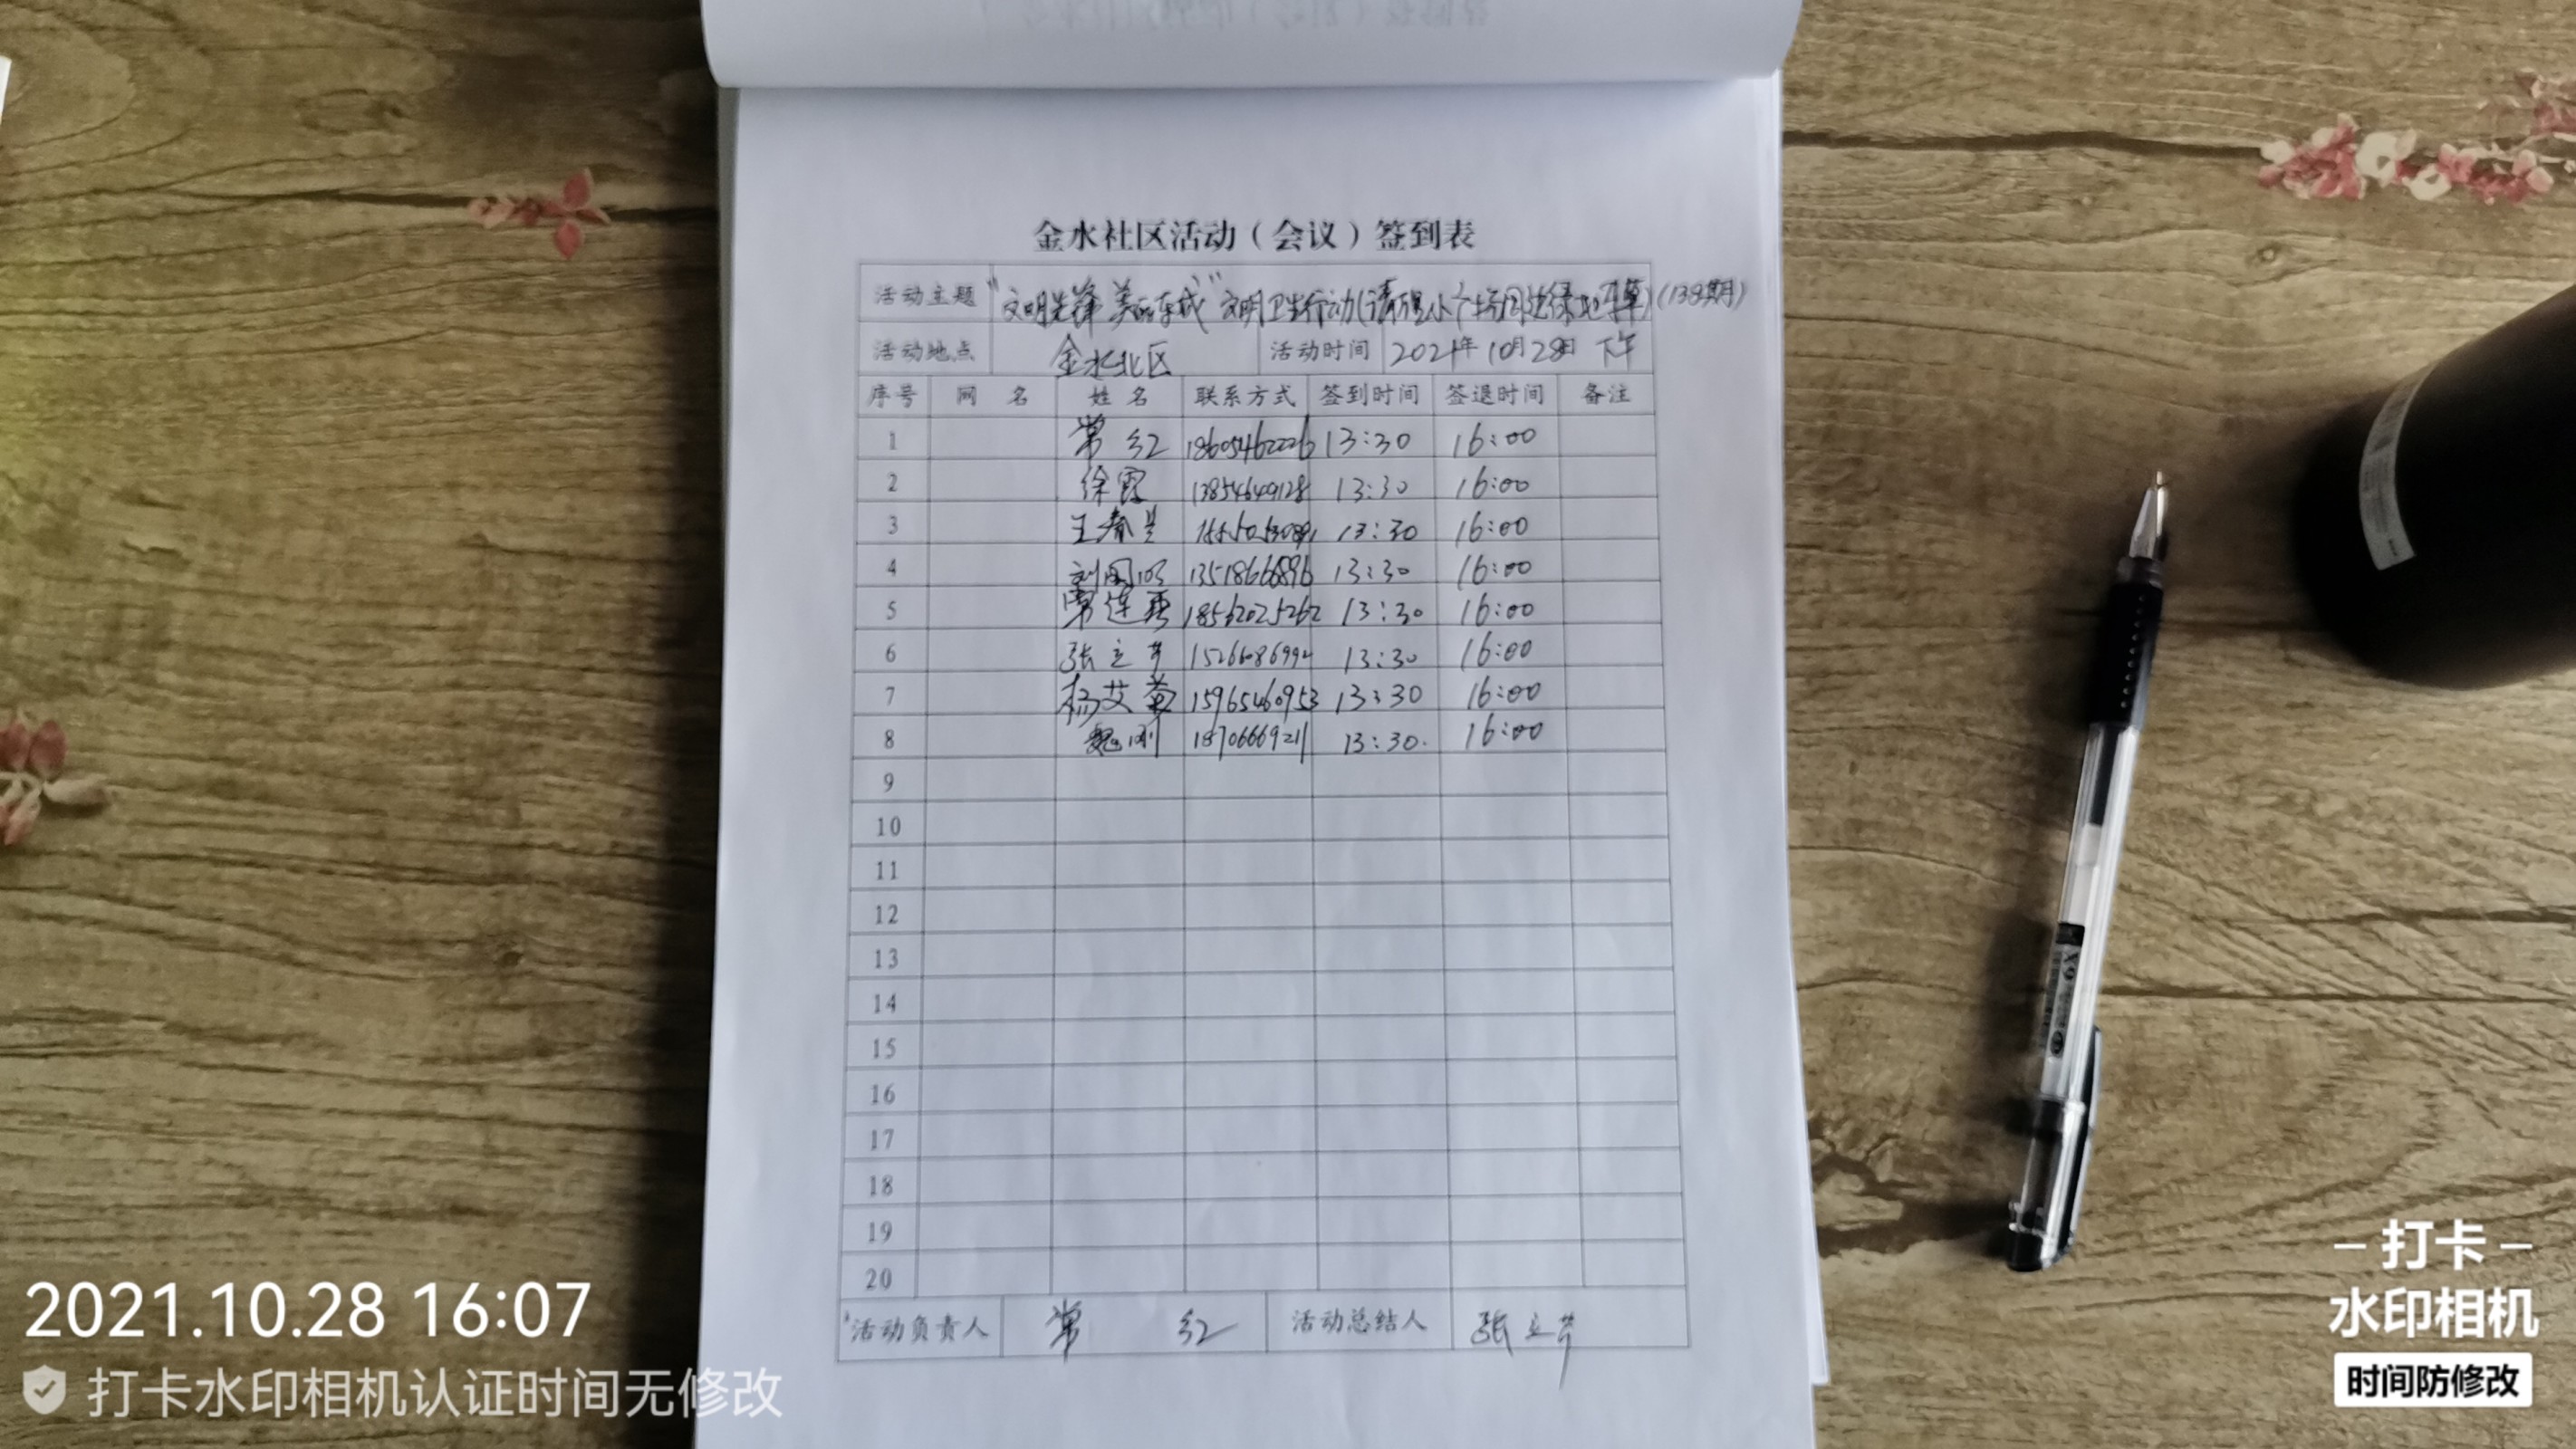 金水社区活动（会议）签到表
活动主题 "文明先锋 美丽东城"文明卫生行动(清理小广场周边绿地杂草)(138期)
活动地点 金水北区 活动时间 2021年10月28日 下午
序号 网 名 姓 名 联系方式 签到时间 签退时间 备注
1 常红 18605462226 13:30 16:00
2 徐霞 13854649128 13:30 16:00
3 王春兰 13:30 16:00
4 刘国 13518666896 13:30 16:00
5 常连 18562025262 13:30 16:00
6 张立芹 1526686994 13:30 16:00
7 杨艾菊 15965460953 13:30 16:00
8 魏刚 18706669211 13:30. 16:00
9
10
11
12
13
14
15
16
17
18
19
20
活动负责人 常 红 活动总结人 张立芹
2021.10.28 16:07
打卡水印相机认证时间无修改
打卡
水印相机
时间防修改
X9